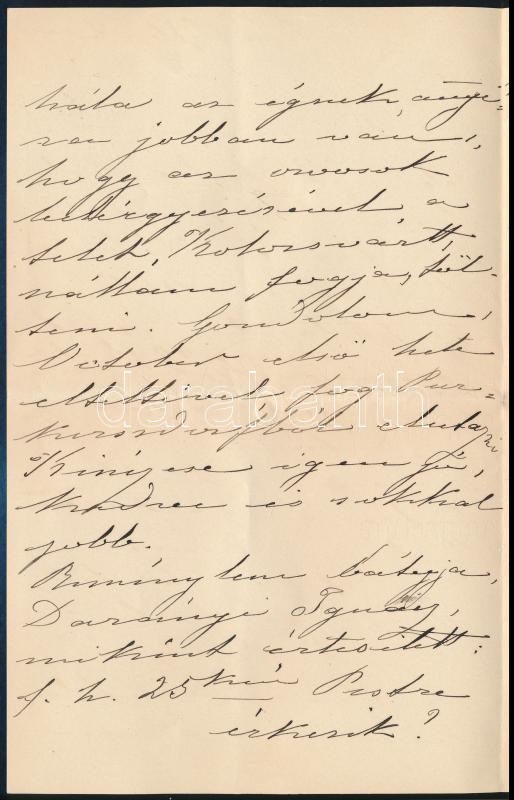 hála az égnek, annyi-
ra jobban van,
hogy az orvosok
beleegyezésével, a
telet, Kolozsvártt,
nállam fogja, töl-
teni. Gondolom,
October első hete
elteltével, fog Pur-
elutazni
Kinézése igen jó,
kedve is sokkal
jobb.
Reménylem bátyja,
Darányi Ignácz,
miként értesitett:
f. h. 25 kén Pestre
érkezik?
darabanth